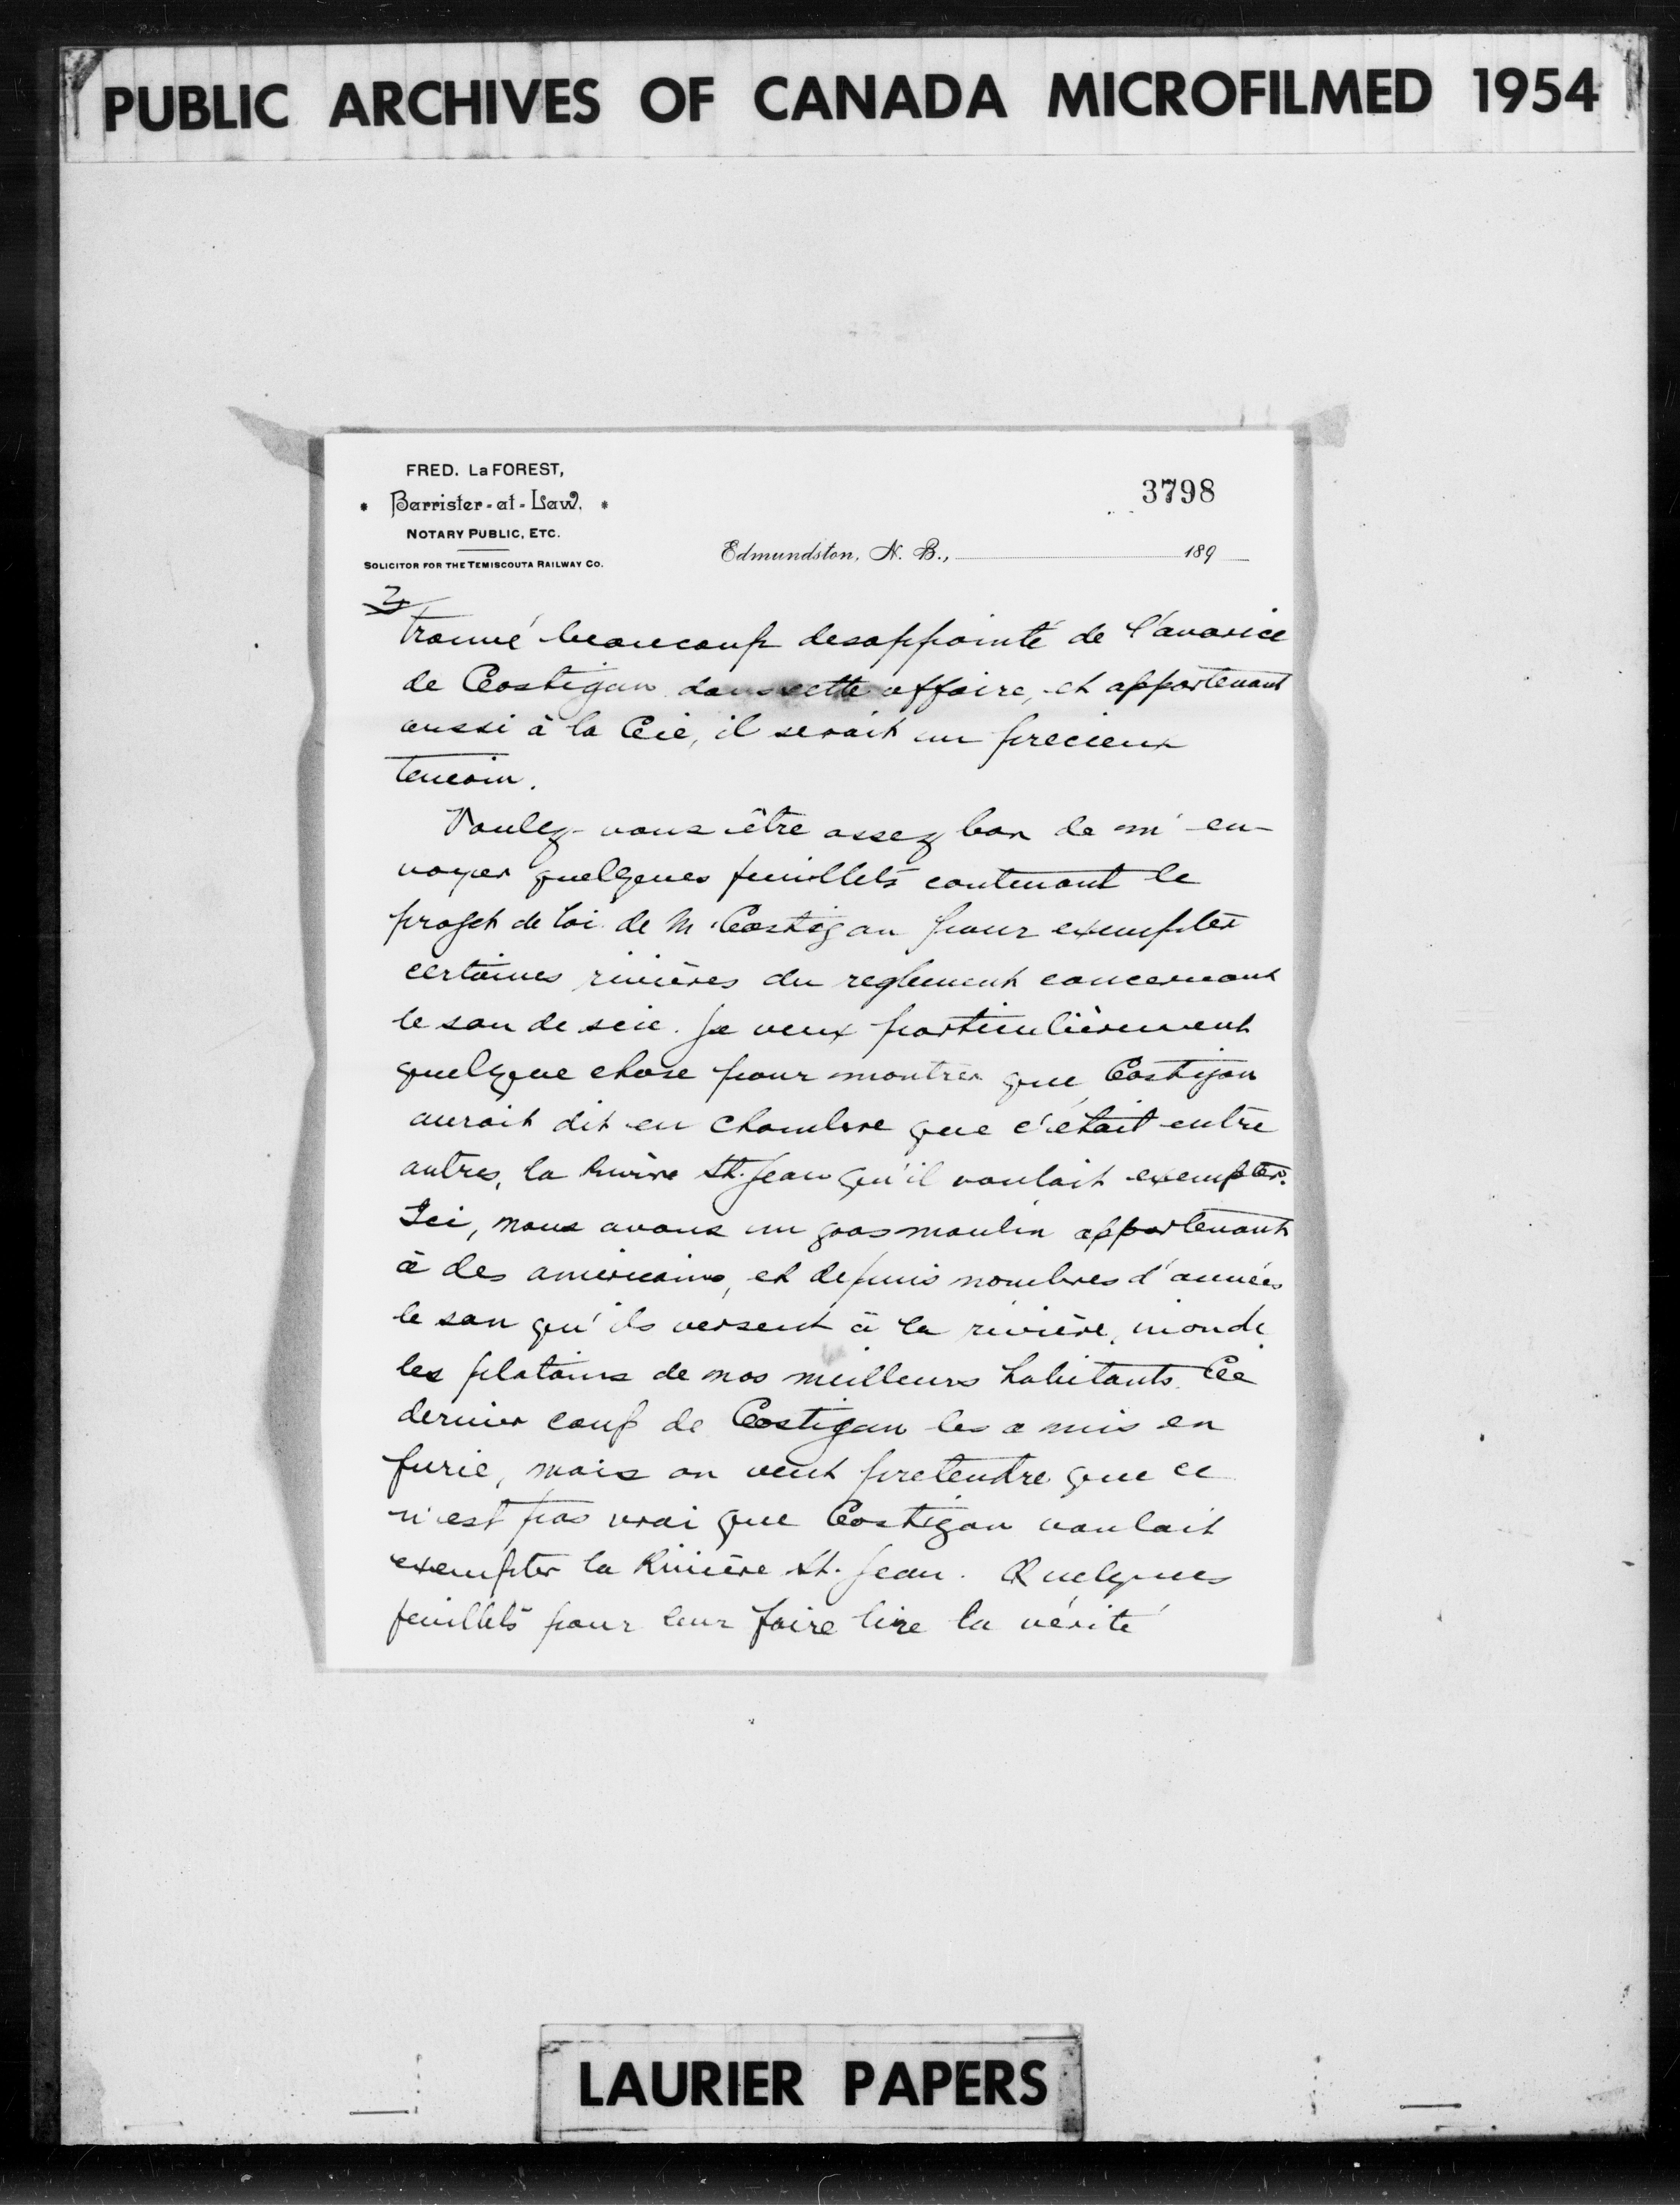 PUBLIC ARCHIVES OF CANADA MICROFILMED 1954
FRED. LaFOREST,
Barrister-at-Law.
NOTARY PUBLIC, ETC.
SOLICITOR FOR THE TEMISCOUTA RAILWAY CO.
3798
Edmundston, N. B., 189
trouvé beaucoup desappointé de l'avarice
de Costigan dans cette affaire, et appartenant
aussi à la Cie, il serait un precieux
temoin.
Voulez-vous être assez bon de m'en-
voyer quelques feuillets contenant le
projet de loi de M. Costigan pour exempter
certaines rivières du reglement concernant
le son de scie. Je veux particulièrement
quelque chose pour montrer que Costigan
aurait dit en Chambre que c'était entre
autres, la Rivière St. Jean qu'il voulait exempter.
Ici, nous avons un gros moulin appartenant
à des americains, et depuis nombres d'années
le son qu'ils versent à la rivière, inonde
les platains de nos meilleurs habitants. Ce
dernier coup de Costigan les a mis en
furie, mais on veut pretendre que ce
n'est pas vrai que Costigan voulait
exempter la Rivière St. Jean. Quelques
feuillets pour leur faire lire la vérité
LAURIER PAPERS